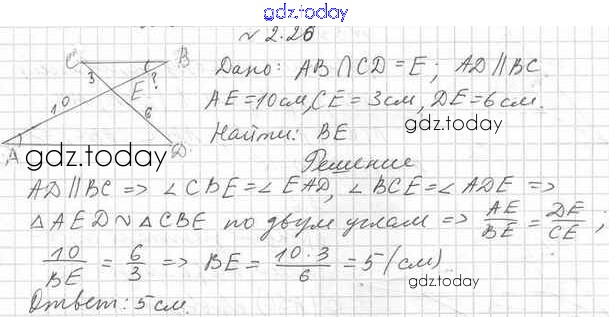 gdz.today
№ 2.26
C B
3 E ?
10 6
A D
Дано: AB ∩ CD = E; AD || BC.
AE = 10 см, CE = 3 см, DE = 6 см.
gdz.today
Найти: BE
gdz.today
Решение
AD || BC => ∠ CBE = ∠ EAD, ∠ BCE = ∠ ADE =>
△ AED ~ △ CBE по двум углам => AE/BE = DE/CE;
10/BE = 6/3 => BE = 10 · 3/6 = 5 (см)
gdz.today
Ответ: 5 см.